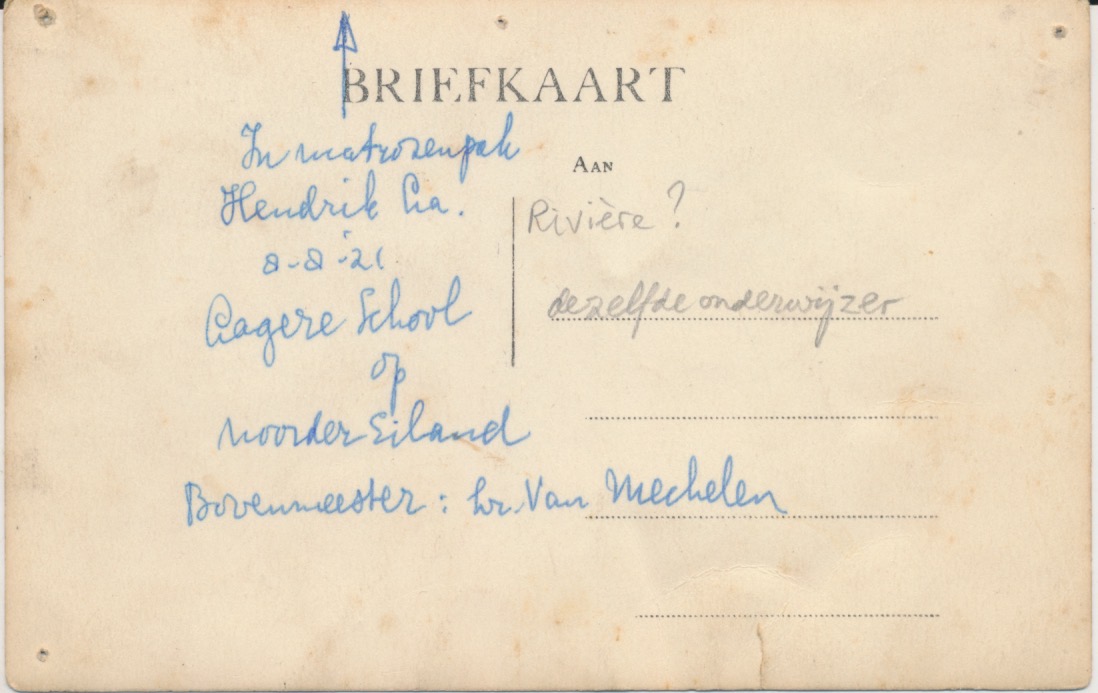 BRIEFKAART
In matrozenpak
Hendrik La.
8-8-'21
Lagere School
op
Noorder Eiland
Bovenmeester: hr. Van Mechelen
AAN
Rivière?
dezelfde onderwijzer